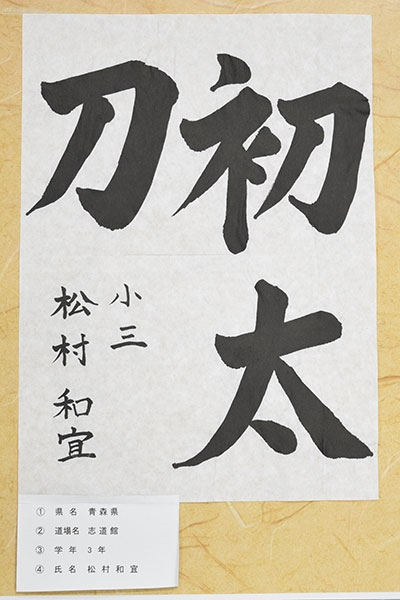 初太
刀
小三
松村和宜
① 県名 青森県
② 道場名 志道館
③ 学年 3年
④ 氏名 松村和宜